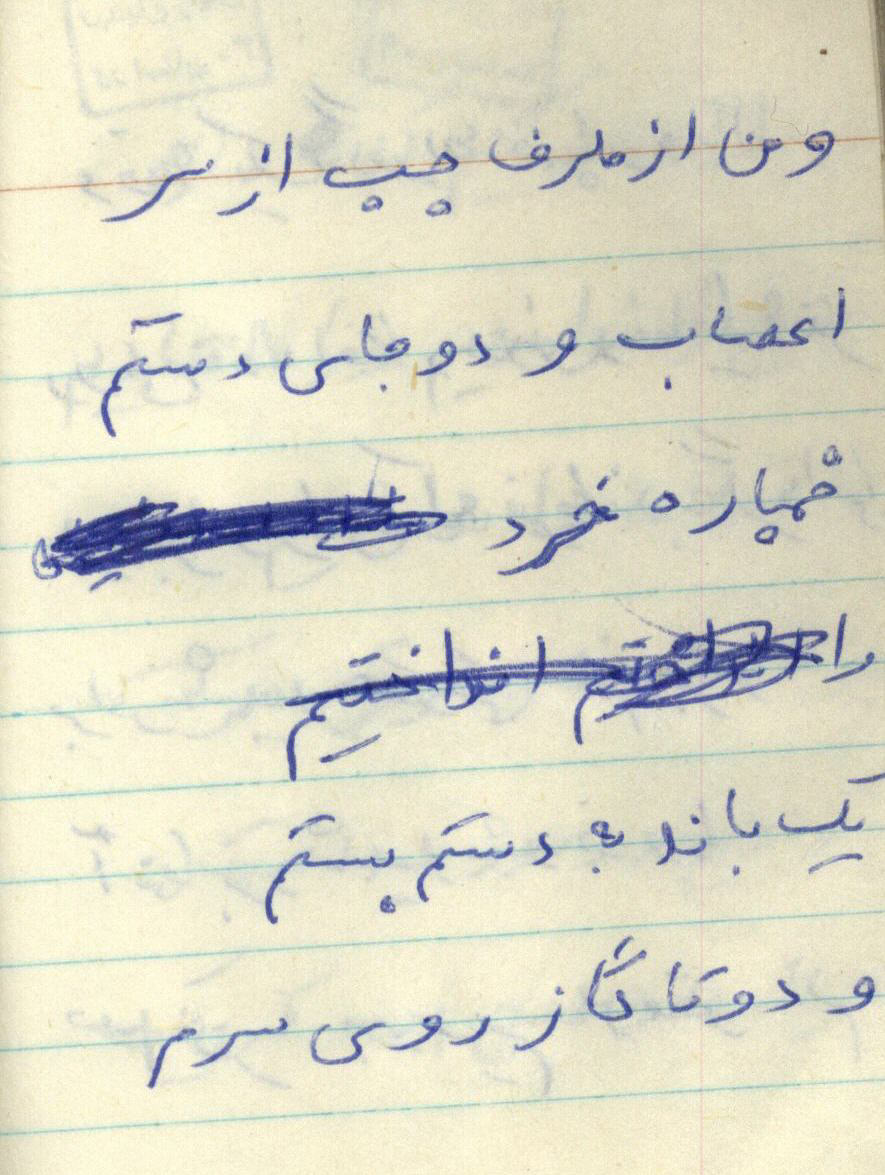 و من از طرف چپ از سر
اعصاب و دو جای دستم
خمپاره خورد
را
انداختیم
یک باند به دستم بستم
و دو تا گاز روی سرم